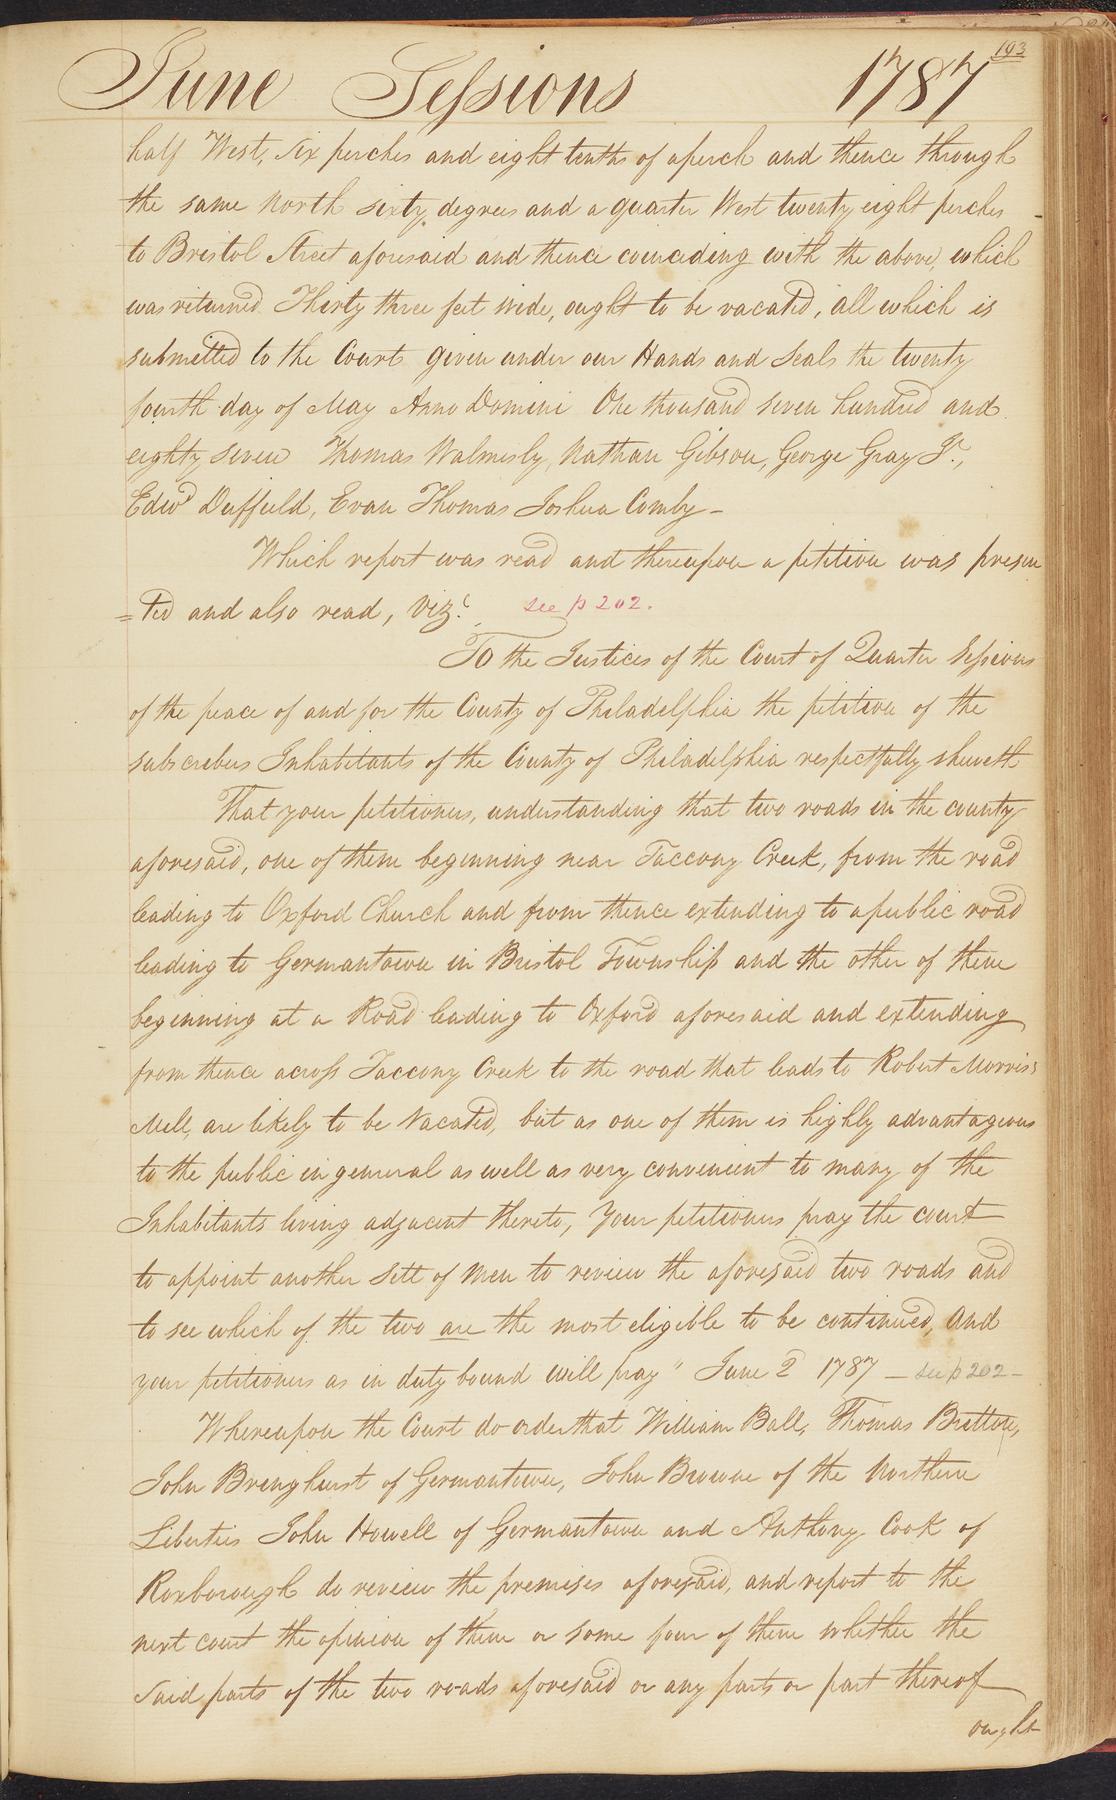 193
June Sessions 1787
half West, six perches and eight tenths of a perch and thence through
the same North sixty degrees and a quarter West twenty eight perches
to Bristol Street aforesaid and thence coinciding with the above, which
was returned Thirty three feet wide, ought to be vacated, all which is
submitted to the Court given under our Hands and Seals the twenty
fourth day of May Anno Domini One thousand seven hundred and
eighty seven Thomas Walmisly, Nathan Gibson, George Gray Jr.,
Edwd Duffield, Evan Thomas Joshua Comly -
Which report was read and thereupon a petition was presen
=ted and also read, Vizt. see p 202.
To the Justices of the Court of Quarter Sessions
of the peace of and for the County of Philadelphia the petition of the
subscribers Inhabitants of the County of Philadelphia respectfully sheweth
That your petitioners, understanding that two roads in the county
aforesaid, one of them beginning near Taccony Creek, from the road
leading to Oxford Church and from thence extending to a public road
leading to Germantown in Bristol Township and the other of them
beginning at a Road leading to Oxford aforesaid and extending
from thence across Taccony Creek to the road that leads to Robert Morris's
Mill, are likely to be Vacated, but as one of them is highly advantageous
to the public in general as well as very convenient to many of the
Inhabitants living adjacent thereto, Your petitioners pray the court
to appoint another Sett of Men to review the aforesaid two roads and
to see which of the two are the most eligible to be continued, and
your petitioners as in duty bound will pray" June 2 1787 - see p 202 -
Whereupon the Court do order that William Ball, Thomas Britton,
John Bringhurst of Germantown, John Browne of the Northern
Liberties John Howell of Germantown and Anthony Cook of
Roxborough do review the premises aforesaid, and report to the
next court the opinion of them or some four of them whether the
said parts of the two roads aforesaid or any parts or part thereof
ought